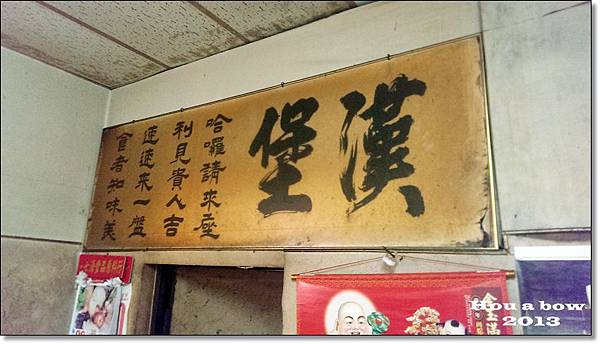 漢堡
哈囉請來座
利見貴人吉
速速來一盤
食者知味美
金玉滿
Hou a bow
2013